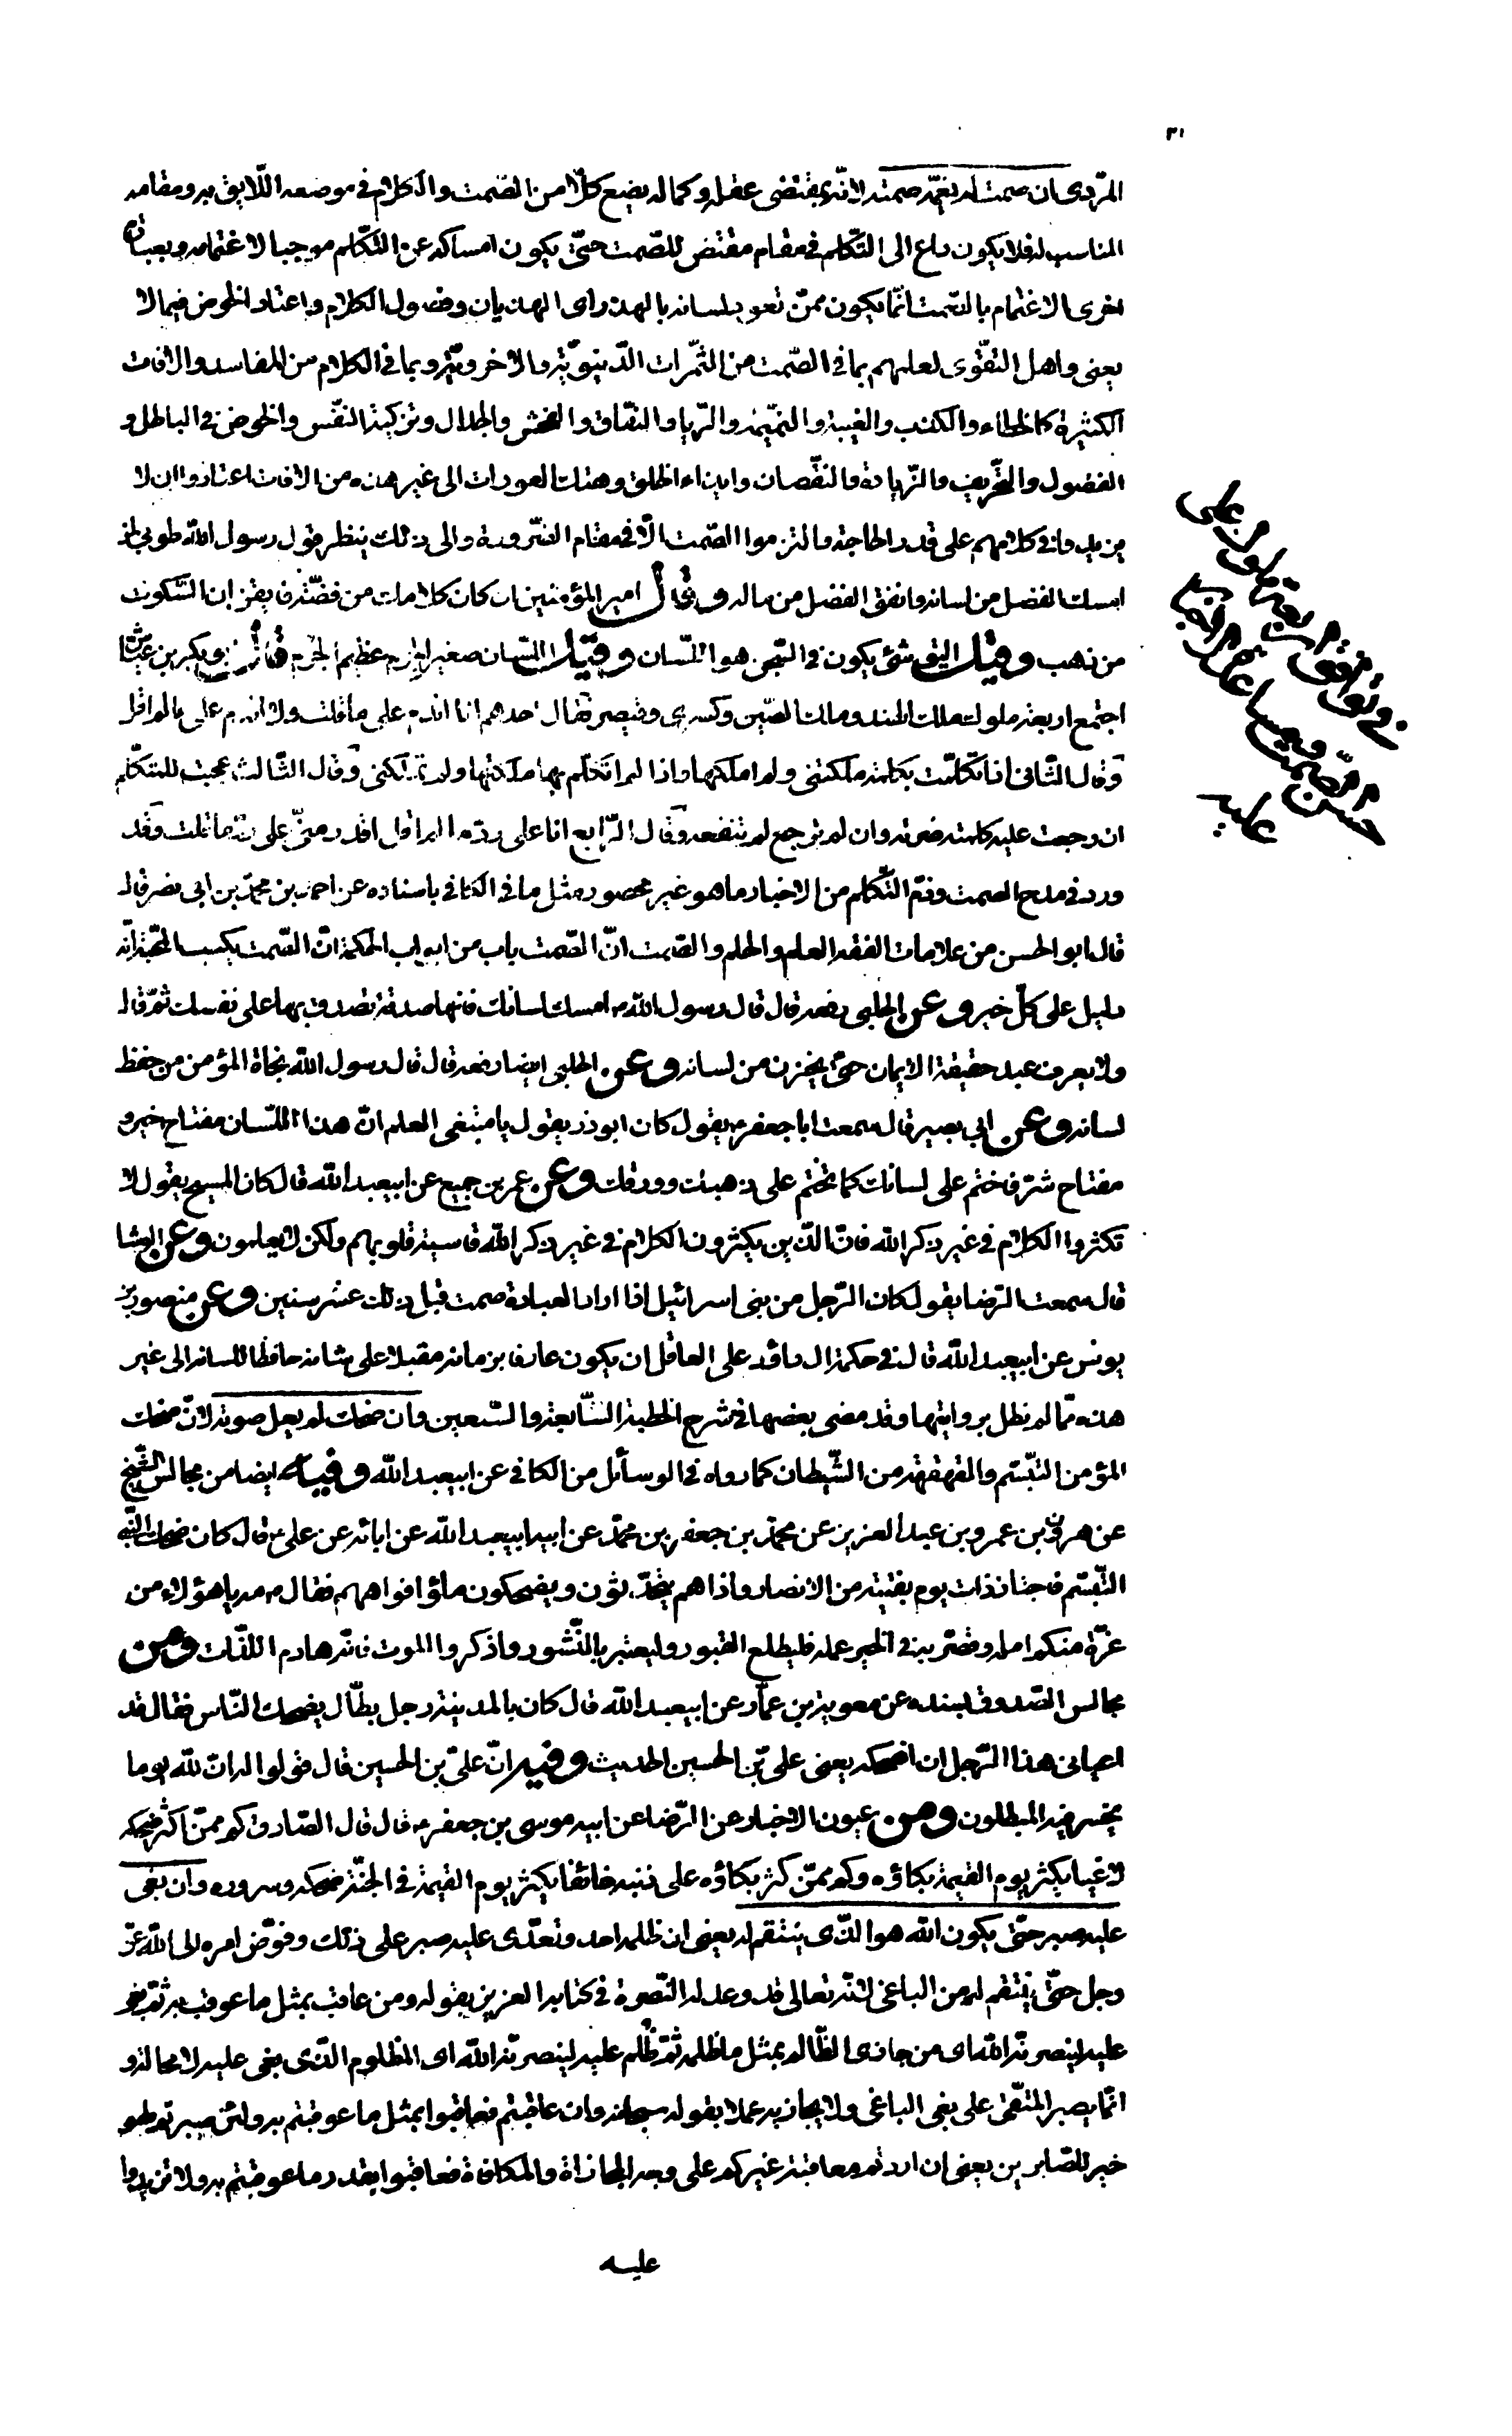 ٣١
المرّدى ان صمت لم يغمّه صمته لانّه بمقتضى عقله وكماله يضع كلّا من الصّمت والكلام في موضعه اللّايق به ومقامه
المناسب له فلا يكون داع الى التّكلم في مقام مقتض للصّمت حتّى يكون امساكه عن التّكلم موجبا لاغتمامه وبعبارة
اخرى الاغتمام بالصّمت انّما يكون ممّن تعود لسانه بالهذر اى الهذيان وفضول الكلام واعتاد الخوض فيما لا
يعنى واهل التّقوى لعلمهم بما في الصّمت من الثّمرات الدّنيويّة والاخرويّة وبما في الكلام من المفاسد والافات
الكثيرة كالخطاء والكذب والغيبة والنّميمة والرّيا والنّفاق والفحش والجدال وتزكية النّفس والخوض في الباطل و
الفضول والتّحريف والزّيادة والنّقصان وايذاء الخلق وهتك العورات الى غير هذه من الافات اعتادوا ان لا
يزيدوا في كلامهم على قدر الحاجة والتزموا الصّمت الّا في مقام الضّرورة والى ذلك ينظر قول رسول اللّه طوبى لمن
امسك الفضل من لسانه وانفق الفضل من ماله وقال امير المؤمنين ان كان كلامك من فضّة فايقن ان السّكوت
من ذهب وقيل اليق شئ يكون في السّجن هو اللّسان وقيل اللّسان صغير الجرم عظيم الجرم قال ابو بكر بن عيّاش
اجتمع اربعة ملوك ملك الهند وملك الصّين وكسرى وقيصر فقال احدهم انا اندم على ما قلت ولا اندم على ما لم اقل
وقال الثّانى اذا تكلّمت بكلمة ملكتنى ولم املكها واذا لم اتكلّم بها ملكتها ولم تملكنى وقال الثّالث عجبت للمتكلّم
ان رجعت عليه كلمته ضرته وان لم ترجع لم تنفعه وقال الرّابع انا على ردّ ما لم اقل اقدر منّى على ردّ ما قلت وقد
ورد في مدح الصمت وذمّ التّكلم من الاخبار ما هو غير محصور مثل ما في الكافي باسناده عن احمد بن محمّد بن ابى نصر قال
قال ابو الحسن من علامات الفقه العلم والحلم والصّمت انّ الصّمت باب من ابواب الحكمة انّ الصّمت يكسب المحبّة انّه
دليل على كلّ خير وعن الحلبى رفعه قال قال رسول اللّه ص امسك لسانك فانها صدقة تصدق بها على نفسك ثمّ قال
ولا يعرف عبد حقيقة الايمان حتّى يخزن من لسانه وعن الحلبى ايضا رفعه قال قال رسول اللّه نجاة المؤمن من حفظ
لسانه وعن ابى بصير قال سمعت ابا جعفر ع يقول كان ابوذر يقول يا مبتغى العلم انّ هذا اللّسان مفتاح خير و
مفتاح شرّ فاختم على لسانك كما تختم على ذهبك وورقك وعن عمر بن جميع عن ابيعبد اللّه قال كان المسيح يقول لا
تكثروا الكلام في غير ذكر اللّه فانّ الّذين يكثرون الكلام في غير ذكر اللّه قاسية قلوبهم ولكن لا يعلمون وعن الوشا
قال سمعت الرّضا يقول كان الرّجل من بنى اسرائيل اذا اراد العبادة صمت قبل ذلك عشر سنين وعن منصور بن
يونس عن ابيعبد اللّه قال في حكمة ال داؤد على العاقل ان يكون عارفا بزمانه مقبلا على شانه حافظا للسانه الى غير
هذه ممّا لم نطل بروايتها وقد مضى بعضها في شرح الخطبة السّابعة والسّبعين وان ضحك لم يعل صوته لانّ ضحك
المؤمن التّبسّم والقهقهة من الشّيطان كما رواه في الوسائل من الكافي عن ابيعبد اللّه وفيه ايضا من مجالس الشّيخ
عن هرون بن عمرو بن عبد العزيز عن محمّد بن جعفر بن محمّد عن ابيه ابيعبد اللّه عن ابائه عن على ع قال كان ضحك النّبى
التّبسّم فاجتاز ذات يوم بفتية من الانصار واذا هم يتحدّثون ويضحكون ملؤ افواههم فقال ص مه يا هؤلاء من
غرّه منكم امله وقصّر به في الخير عمله فليطلع القبور وليعتبر بالنّشور واذكروا الموت فانّه هادم اللّذات ومن
مجالس الصّدوق بسنده عن معوية بن عمّار عن ابيعبد اللّه قال كان بالمدينة رجل بطّال يضحك النّاس فقال قد
اعيانى هذا الرّجل ان اضحكه يعنى علىّ بن الحسين الحديث وفيه انّ علىّ بن الحسين قال قولوا له انّ للّه يوما
يخسر فيه المبطلون ومن عيون الاخبار عن الرّضا عن ابيه موسى بن جعفر ع قال قال الصّادق كم ممّن اكثر ضحكه
لاعبا يكثر يوم القيمة بكاؤه وكم ممّن كثر بكاؤه على ذنبه خائفا يكثر يوم القيمة في الجنّة ضحكه وسروره وان بغى
عليه صبر حتّى يكون اللّه هو الّذى ينتقم له يعنى ان ظلمه احد وتعدّى عليه صبر على ذلك وفوّض امره الى اللّه عزّ
وجل حتّى ينتقم له من الباغى لانّه تعالى قد وعد له النّصرة في كتابه العزيز بقوله ومن عاقب بمثل ما عوقب به ثمّ بغى
عليه لينصرنّه اللّه اى من جازى الظّالم بمثل ما ظلمه ثمّ ظلم عليه لينصرنّه اللّه اى المظلوم الّذى بغى عليه لا محالة و
انّما يصبر المتّقى على بغى الباغى ولا يجازيه عملا بقوله سبحانه وان عاقبتم فعاقبوا بمثل ما عوقبتم به ولئن صبرتم لهو
خير للصّابرين يعنى ان اردتم معاقبة غيركم على وجه المجازاة والمكافاة فعاقبوا بقدر ما عوقبتم به ولا تزيدوا
عليه
في توافق اربعة ملوك على
حسن الصمت